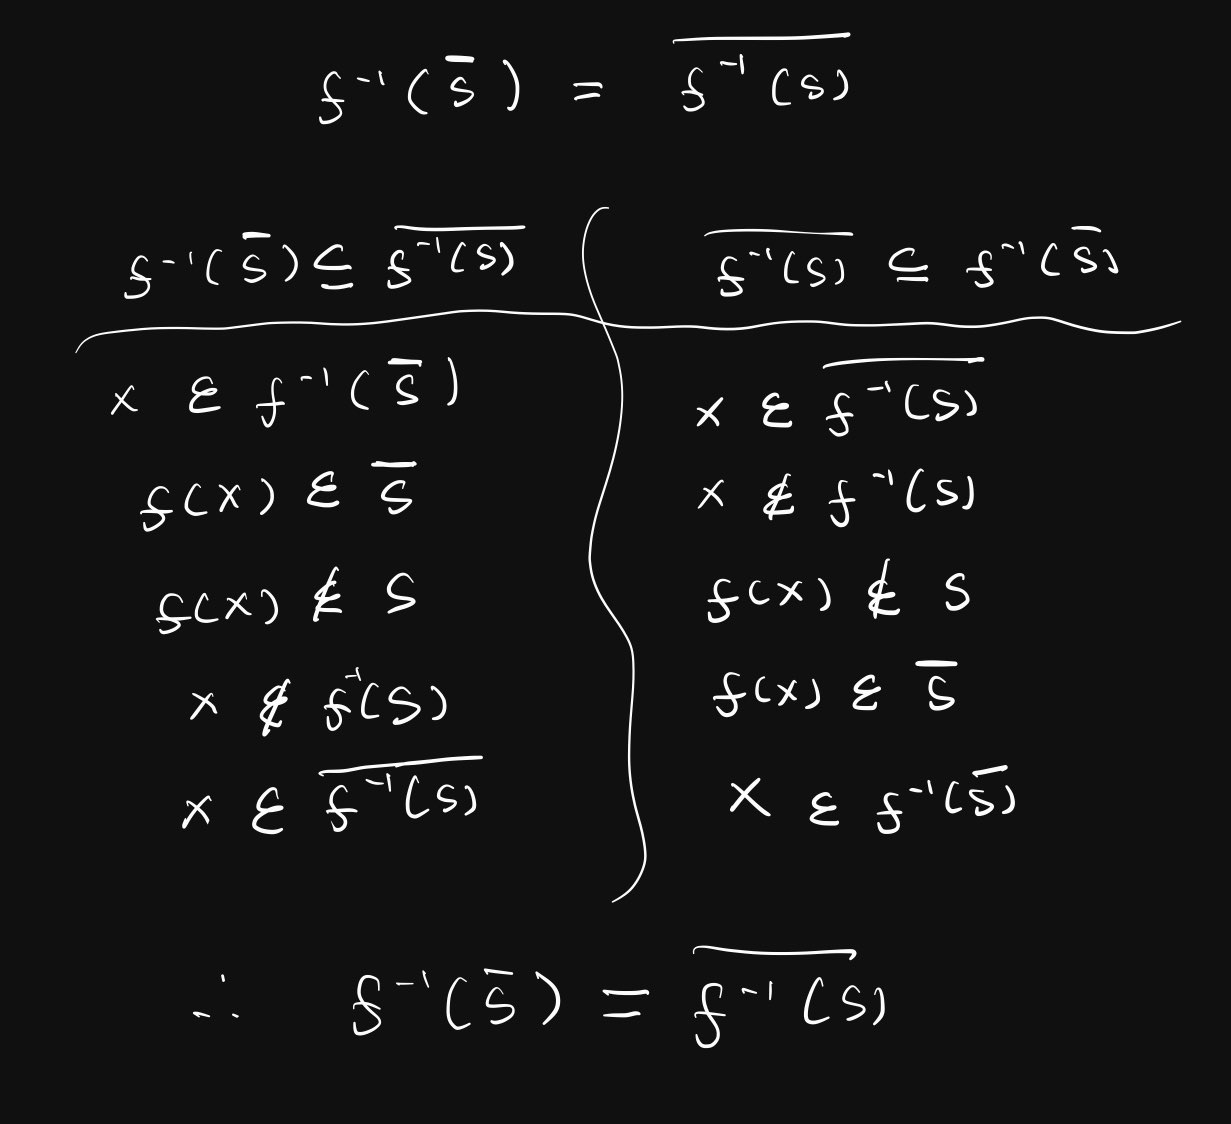 f⁻¹(S̅) = \overline{f⁻¹(S)}
f⁻¹(S̅) ⊆ \overline{f⁻¹(S)}
x ∈ f⁻¹(S̅)
f(x) ∈ S̅
f(x) ∉ S
x ∉ f⁻¹(S)
x ∈ \overline{f⁻¹(S)}
\overline{f⁻¹(S)} ⊆ f⁻¹(S̅)
x ∈ \overline{f⁻¹(S)}
x ∉ f⁻¹(S)
f(x) ∉ S
f(x) ∈ S̅
x ∈ f⁻¹(S̅)
∴ f⁻¹(S̅) = \overline{f⁻¹(S)}